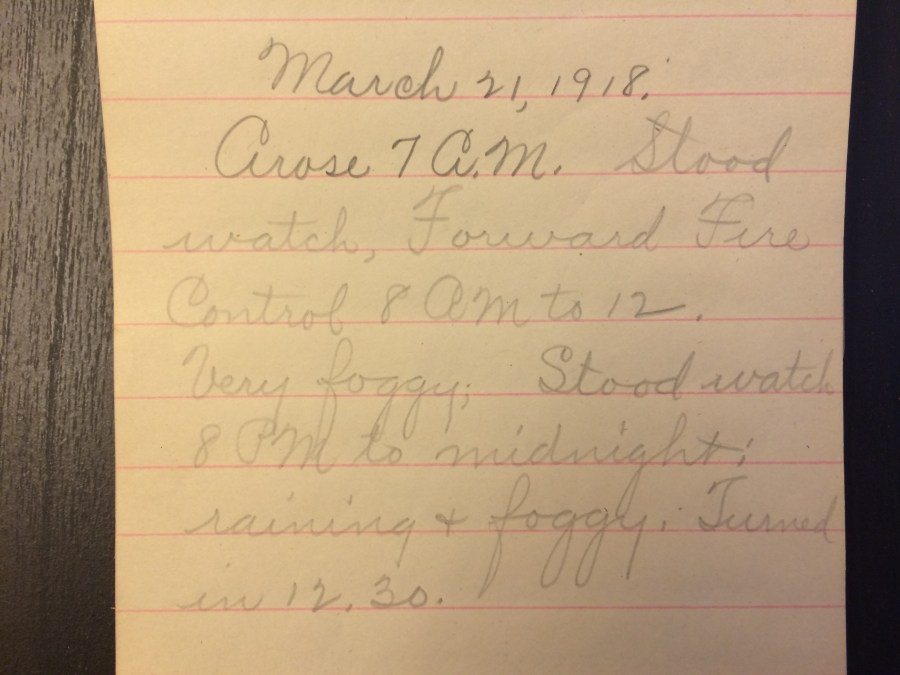 March 21, 1918.
Arose 7 A.M. Stood
watch, Forward Fire
Control 8 AM to 12.
Very foggy; Stood watch
8 PM to midnight;
raining + foggy; Turned
in 12.30.